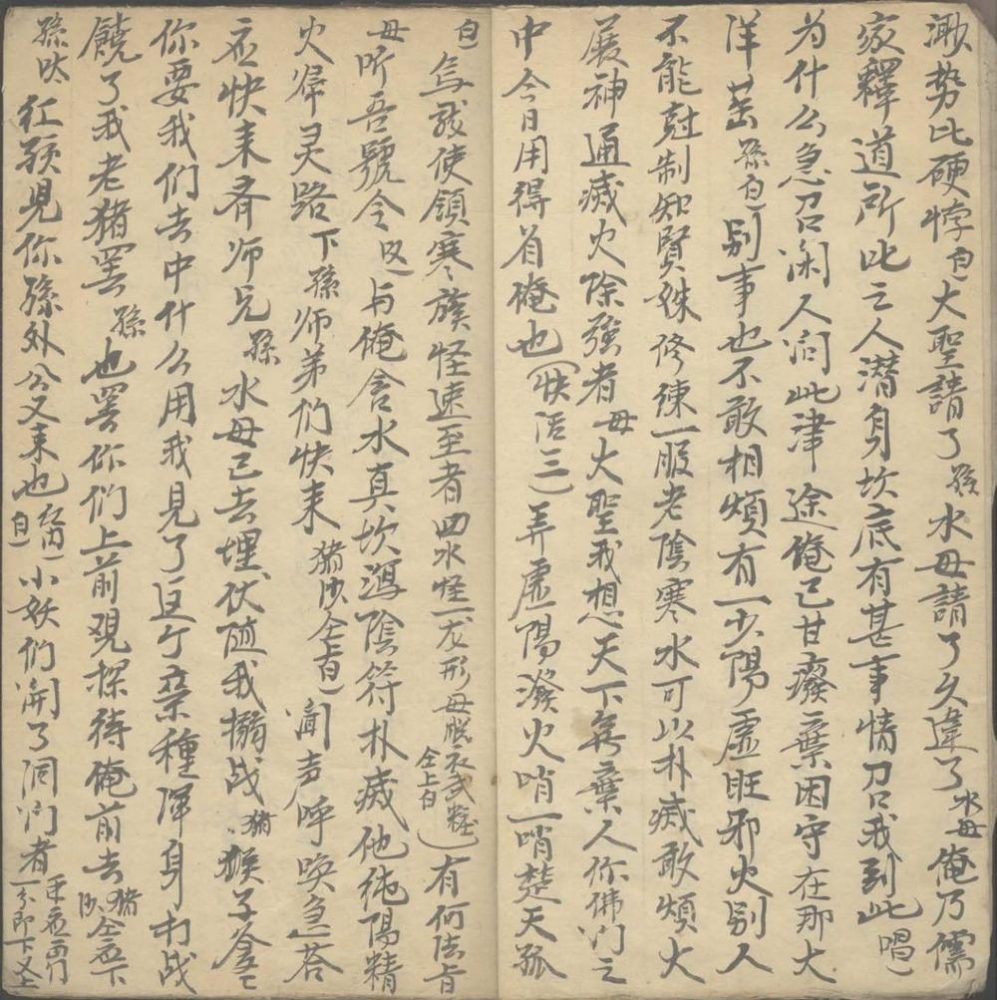 漱势比硬悖白大聖請了孫水母請了久違了水母俺乃儒
家釋道所此之人潛身坎底有甚事情刀召我到此唱
为什么急召闲人问此津途俺已甘癈棄困守在那大
洋盅孫白别事也不敢相煩有一少陽虛旺邪火别人
不能尅制知賢姝修練一服老陰寒水可以朴烕敢煩大
展神通烕火除強者母大聖我想天下無棄人你佛门之
中今日用得着俺也快活三弄虛陽潑火哨一哨楚天孤
白 使領寒簇怪速至者四水怪一龙形母脱衣武粧仝上白有何法旨
母听吾號令 与俺含水真坎瀉陰符朴烕他純陽精
火 灵路下孫师弟们快来猪沙仝上白 闻声呼喚急荅
应快来齐师兄孫水母已去埋伏随我搦战猪猴子
你要我们去中什么用我見了这个業種渾身打战
饒了我老猪罢孫也罢你们上前覌探待俺前去猪沙仝应下
孫呔红孩児你孫外公又来也红内白小妖们開了洞门者